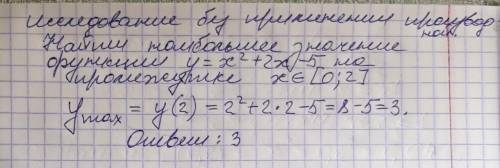 исследование без применения производ
ной.
Найти наибольшее значение
функции y = x² + 2x - 5 на
промежутке x ∈ [0; 2]
y max = y(2) = 2² + 2·2 - 5 = 8 - 5 = 3.
Ответ: 3